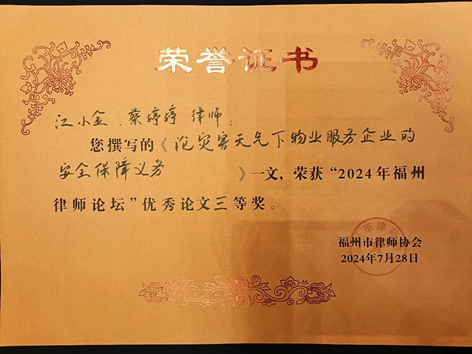 荣誉证书
江小金、蔡婷婷 律师:
您撰写的《论灾害天气下物业服务企业的
安全保障义务 》一文,荣获“2024年福州
律师论坛”优秀论文三等奖。
福州市律师协会
2024年7月28日